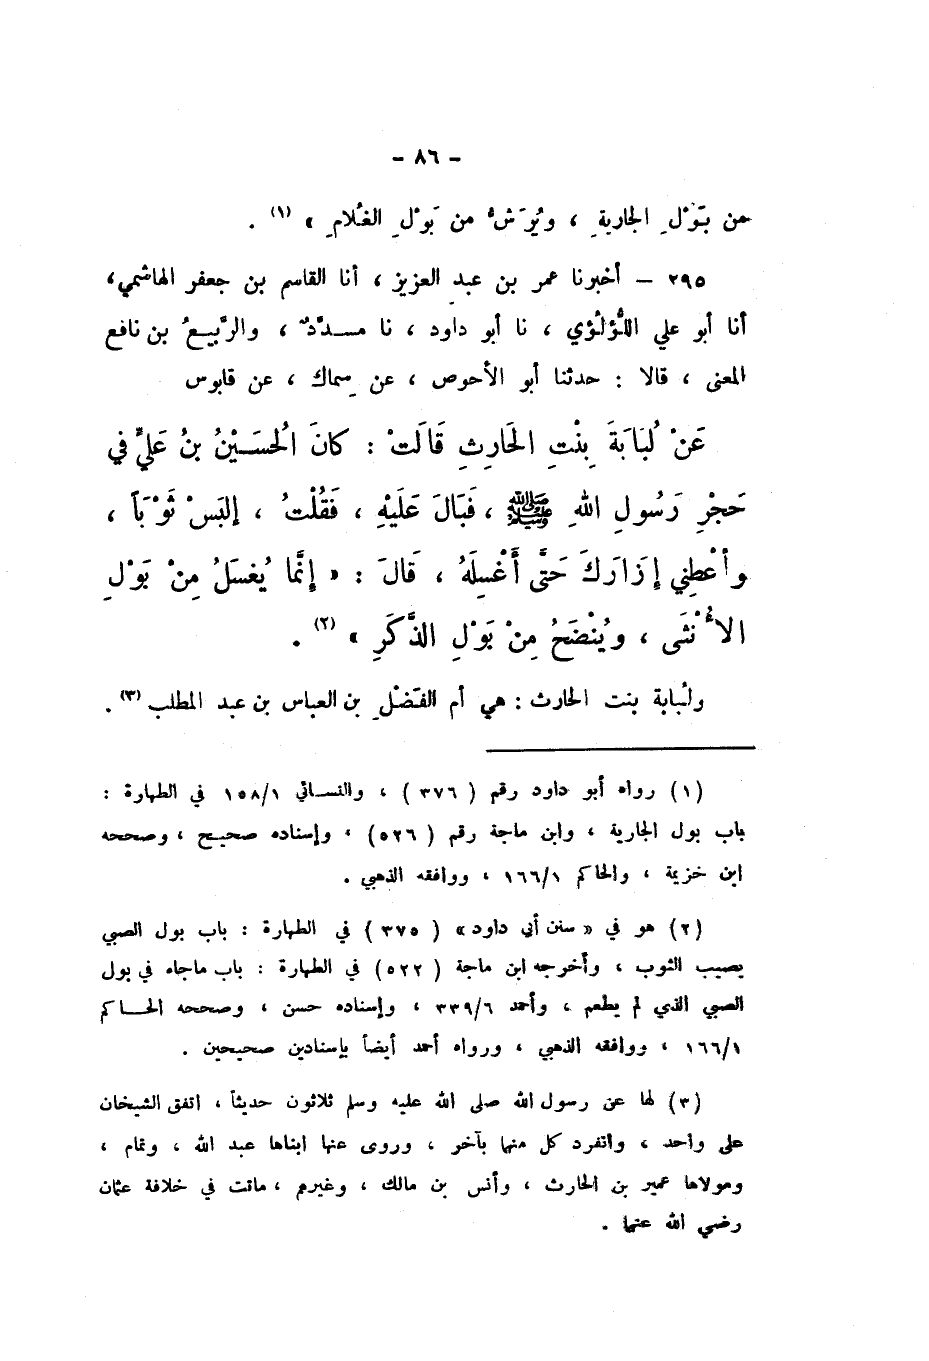 - ٨٦ -
من بَوْلِ الجارية ، ويُرَشُّ من بَوْلِ الغُلام » (١) .
٢٩٥ — أخبرنا عمر بن عبد العزيز ، أنا القاسم بن جعفر الهاشمي ،
أنا أبو علي اللُّؤلُؤي ، نا أبو داود ، نا مسدَّدٌ ، والرَّبيعُ بن نافع
المعنى ، قالا : حدثنا أبو الأحوص ، عن سِماك ، عن قابوس
عَنْ لُبَابَةَ بِنْتِ الحَارِثِ قَالَتْ : كَانَ الْحُسَيْنُ بنُ عَلِيٍّ في
حَجْرِ رَسُولِ اللهِ ﷺ ، فَبَالَ عَلَيْهِ ، فَقُلْتُ ، إلبَسْ ثَوْبَاً ،
وأعْطِني إزَارَكَ حَتَّى أَغْسِلَهُ ، قَالَ : « إنَّما يُغسَلُ مِنْ بَوْلِ
الأُنْثَى ، ويُنْضَحُ مِنْ بَوْلِ الذَّكَرِ » (٢) .
ولُبابة بنت الحارث : هي أم الفَضْل بن العباس بن عبد المطلب (٣) .
(١) رواه أبو داود رقم ( ٣٧٦ ) ، والنسائي ١٥٨/١ في الطهارة :
باب بول الجارية ، وابن ماجة رقم ( ٥٢٦ ) ، وإسناده صحيح ، وصححه
ابن خزيمة ، والحاكم ١٦٦/١ ، ووافقه الذهبي .
(٢) هو في « سنن أبي داود » ( ٣٧٥ ) في الطهارة : باب بول الصبي
يصيب الثوب ، وأخرجه ابن ماجة ( ٥٢٢ ) في الطهارة : باب ماجاء في بول
الصبي الذي لم يطعم ، وأحمد ٣٣٩/٦ ، وإسناده حسن ، وصححه الحاكم
١٦٦/١ ، ووافقه الذهبي ، ورواه أحمد أيضاً بإسنادين صحيحين .
(٣) لها عن رسول الله صلى الله عليه وسلم ثلاثون حديثاً ، اتفق الشيخان
على واحد ، وانفرد كل منهما بآخر ، وروى عنها ابناها عبد الله ، وتمام ،
ومولاها عمير بن الحارث ، وأنس بن مالك ، وغيرهم ، ماتت في خلافة عثمان
رضي الله عنهما .